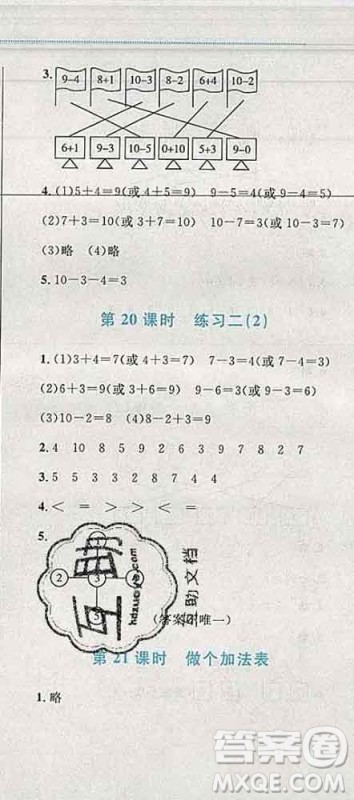 3. 9−4 8+1 10−3 8−2 6+4 10−2
6+1 9−3 10−5 0+10 5+3 9−0
4. (1)5+4=9(或4+5=9) 9−5=4(或9−4=5)
(2)7+3=10(或3+7=10) 10−7=3(或10−3=7)
(3)略 (4)略
5. 10−3−4=3
第20课时 练习二(2)
1. (1)3+4=7(或4+3=7) 7−3=4(或7−4=3)
(2)6+3=9(或3+6=9) 9−6=3(或9−3=6)
(3)10−2=8 (4)8−2=6
2. 4 10 8 5 9 2 6 3 7 9 8 2 7
3. 5 5 3 4 4 4 1 3
4. < = > > < <
5.
① 
② ③ ④
⑤
(答案不唯一)
互助
hdzuoye.com
互助文档
第21课时 做个加法表
1. 略
答案圈
MXQE.COM